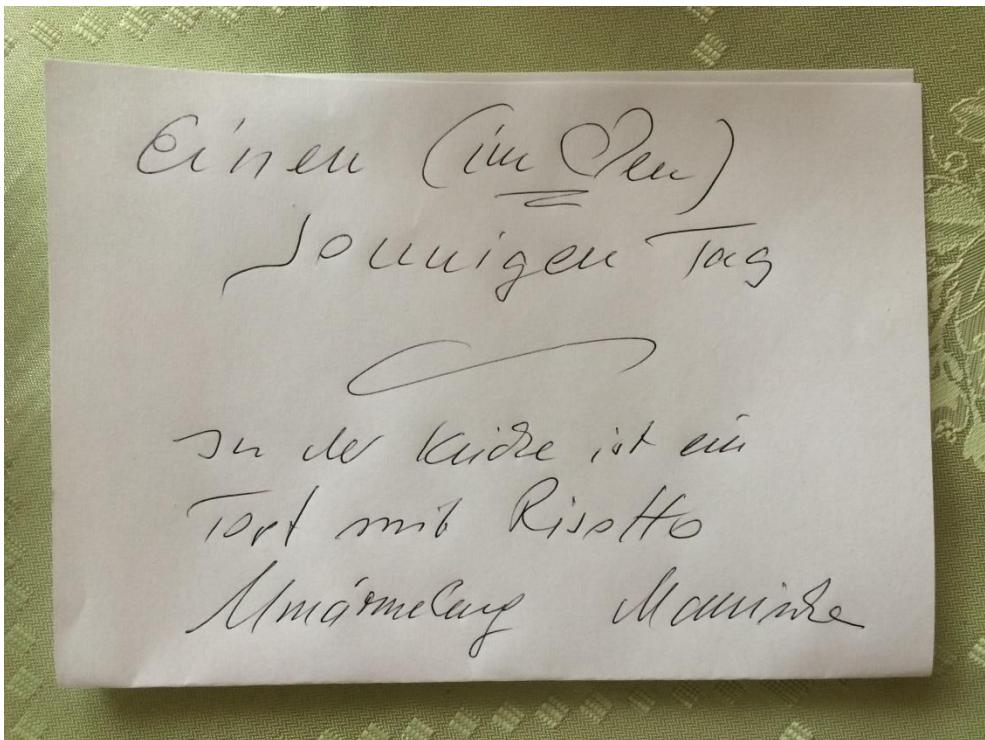 Einen (im ♡en)
sonnigen Tag
In der Küche ist ein
Topf mit Risotto
Umärmelung